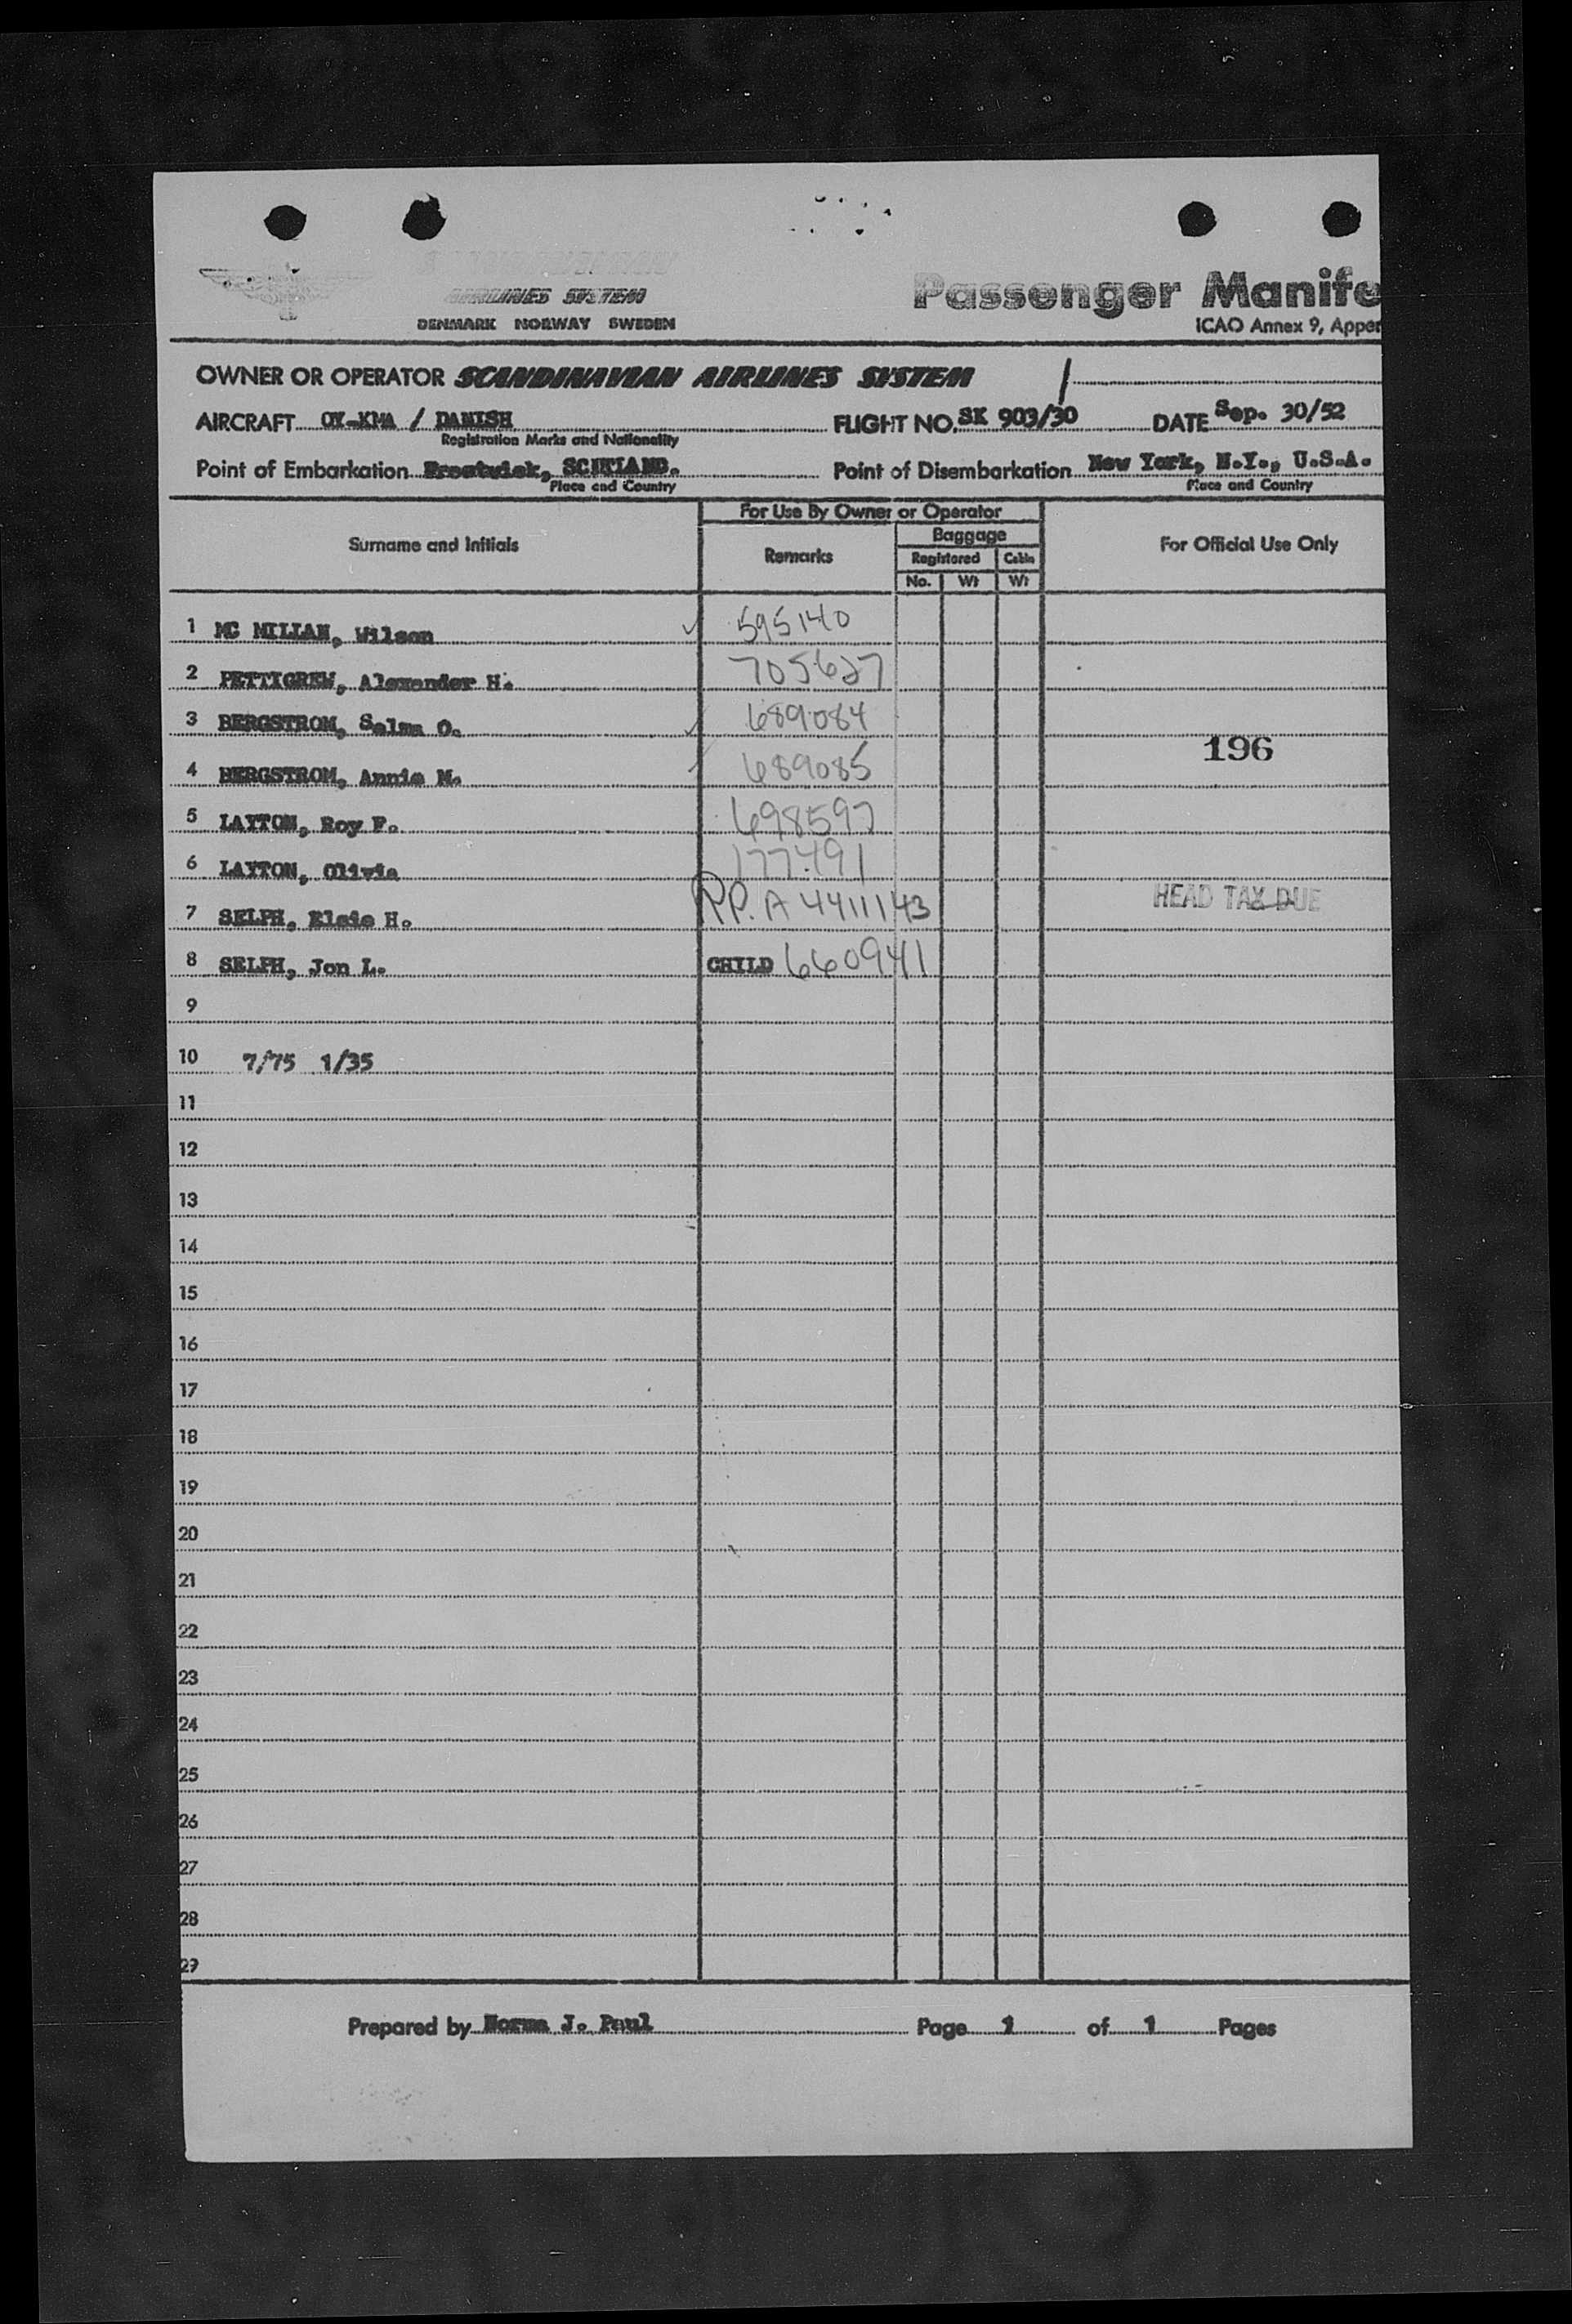 AIRLINES SYSTEM
DENMARK NORWAY SWEDEN
Passenger Manife
ICAO Annex 9, Appen
OWNER OR OPERATOR SCANDINAVIAN AIRLINES SYSTEM
AIRCRAFT OY-KMA / DANISH FLIGHT NO. SK 903/30 DATE Sep. 30/52
Registration Marks and Nationality
Point of Embarkation Prestwick, SCOTLAND. Point of Disembarkation New York, N.Y., U.S.A.
Place and Country Place and Country
For Use By Owner or Operator
Surname and Initials Remarks Baggage For Official Use Only
Registered Cabin
No. Wt Wt
1 MC MILLAN, Wilson 595140
2 PETTIGREW, Alexander H. 705627
3 BERGSTROM, Selma O. 689084
196
4 BERGSTROM, Annie M. 689085
5 LAYTON, Roy F. 698597
6 LAYTON, Olivia 177491
7 SELPH, Elsie H. P.P. A 4411143 HEAD TAX DUE
8 SELPH, Jon L. CHILD 660941
9
10 7/75 1/35
11
12
13
14
15
16
17
18
19
20
21
22
23
24
25
26
27
28
29
Prepared by Norma J. Paul Page 1 of 1 Pages